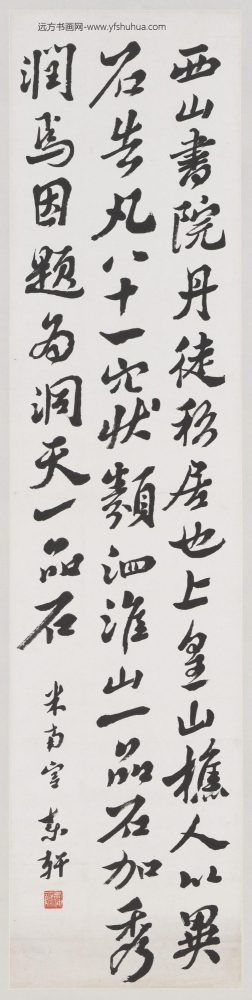 远方书画网-www.yfshuhua.com
西山書院丹徒私居也上皇山樵人以異
石告凡八十一穴狀類泗淮山一品石加秀
潤焉因題為洞天一品石
米南宮 東軒